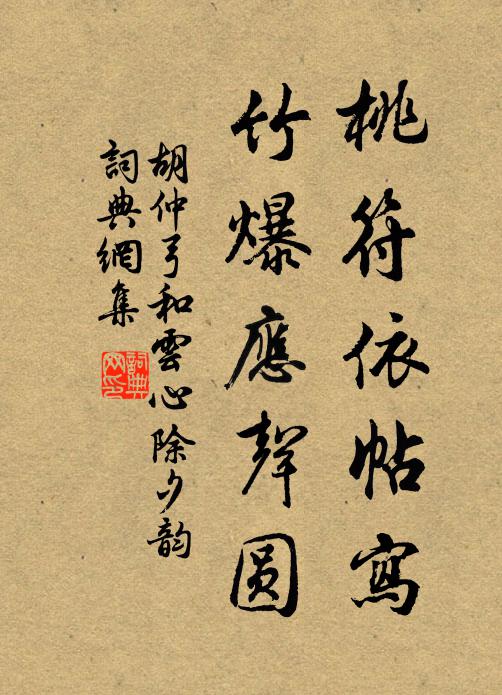 桃符依帖寫
竹爆應聲圓
胡仲弓和雲心除夕韵
詞典網集
詞典
网印